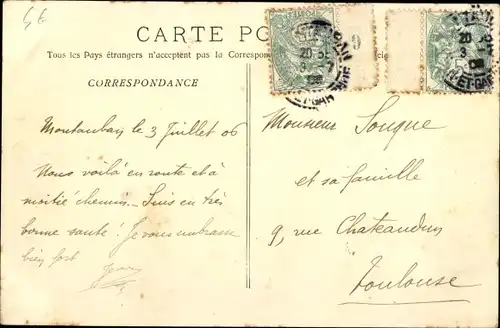 4€
CARTE PO
Tous les Pays étrangers n'acceptent pas la Correspon
CORRESPONDANCE
Montauban le 3 Juillet 06
Nous voilà en route et à
moitié chemin. Suis en très
bonne santé! Je vous embrasse
bien fort
Monsieur Souque
et sa famille
9, rue Chateaudun
Toulouse